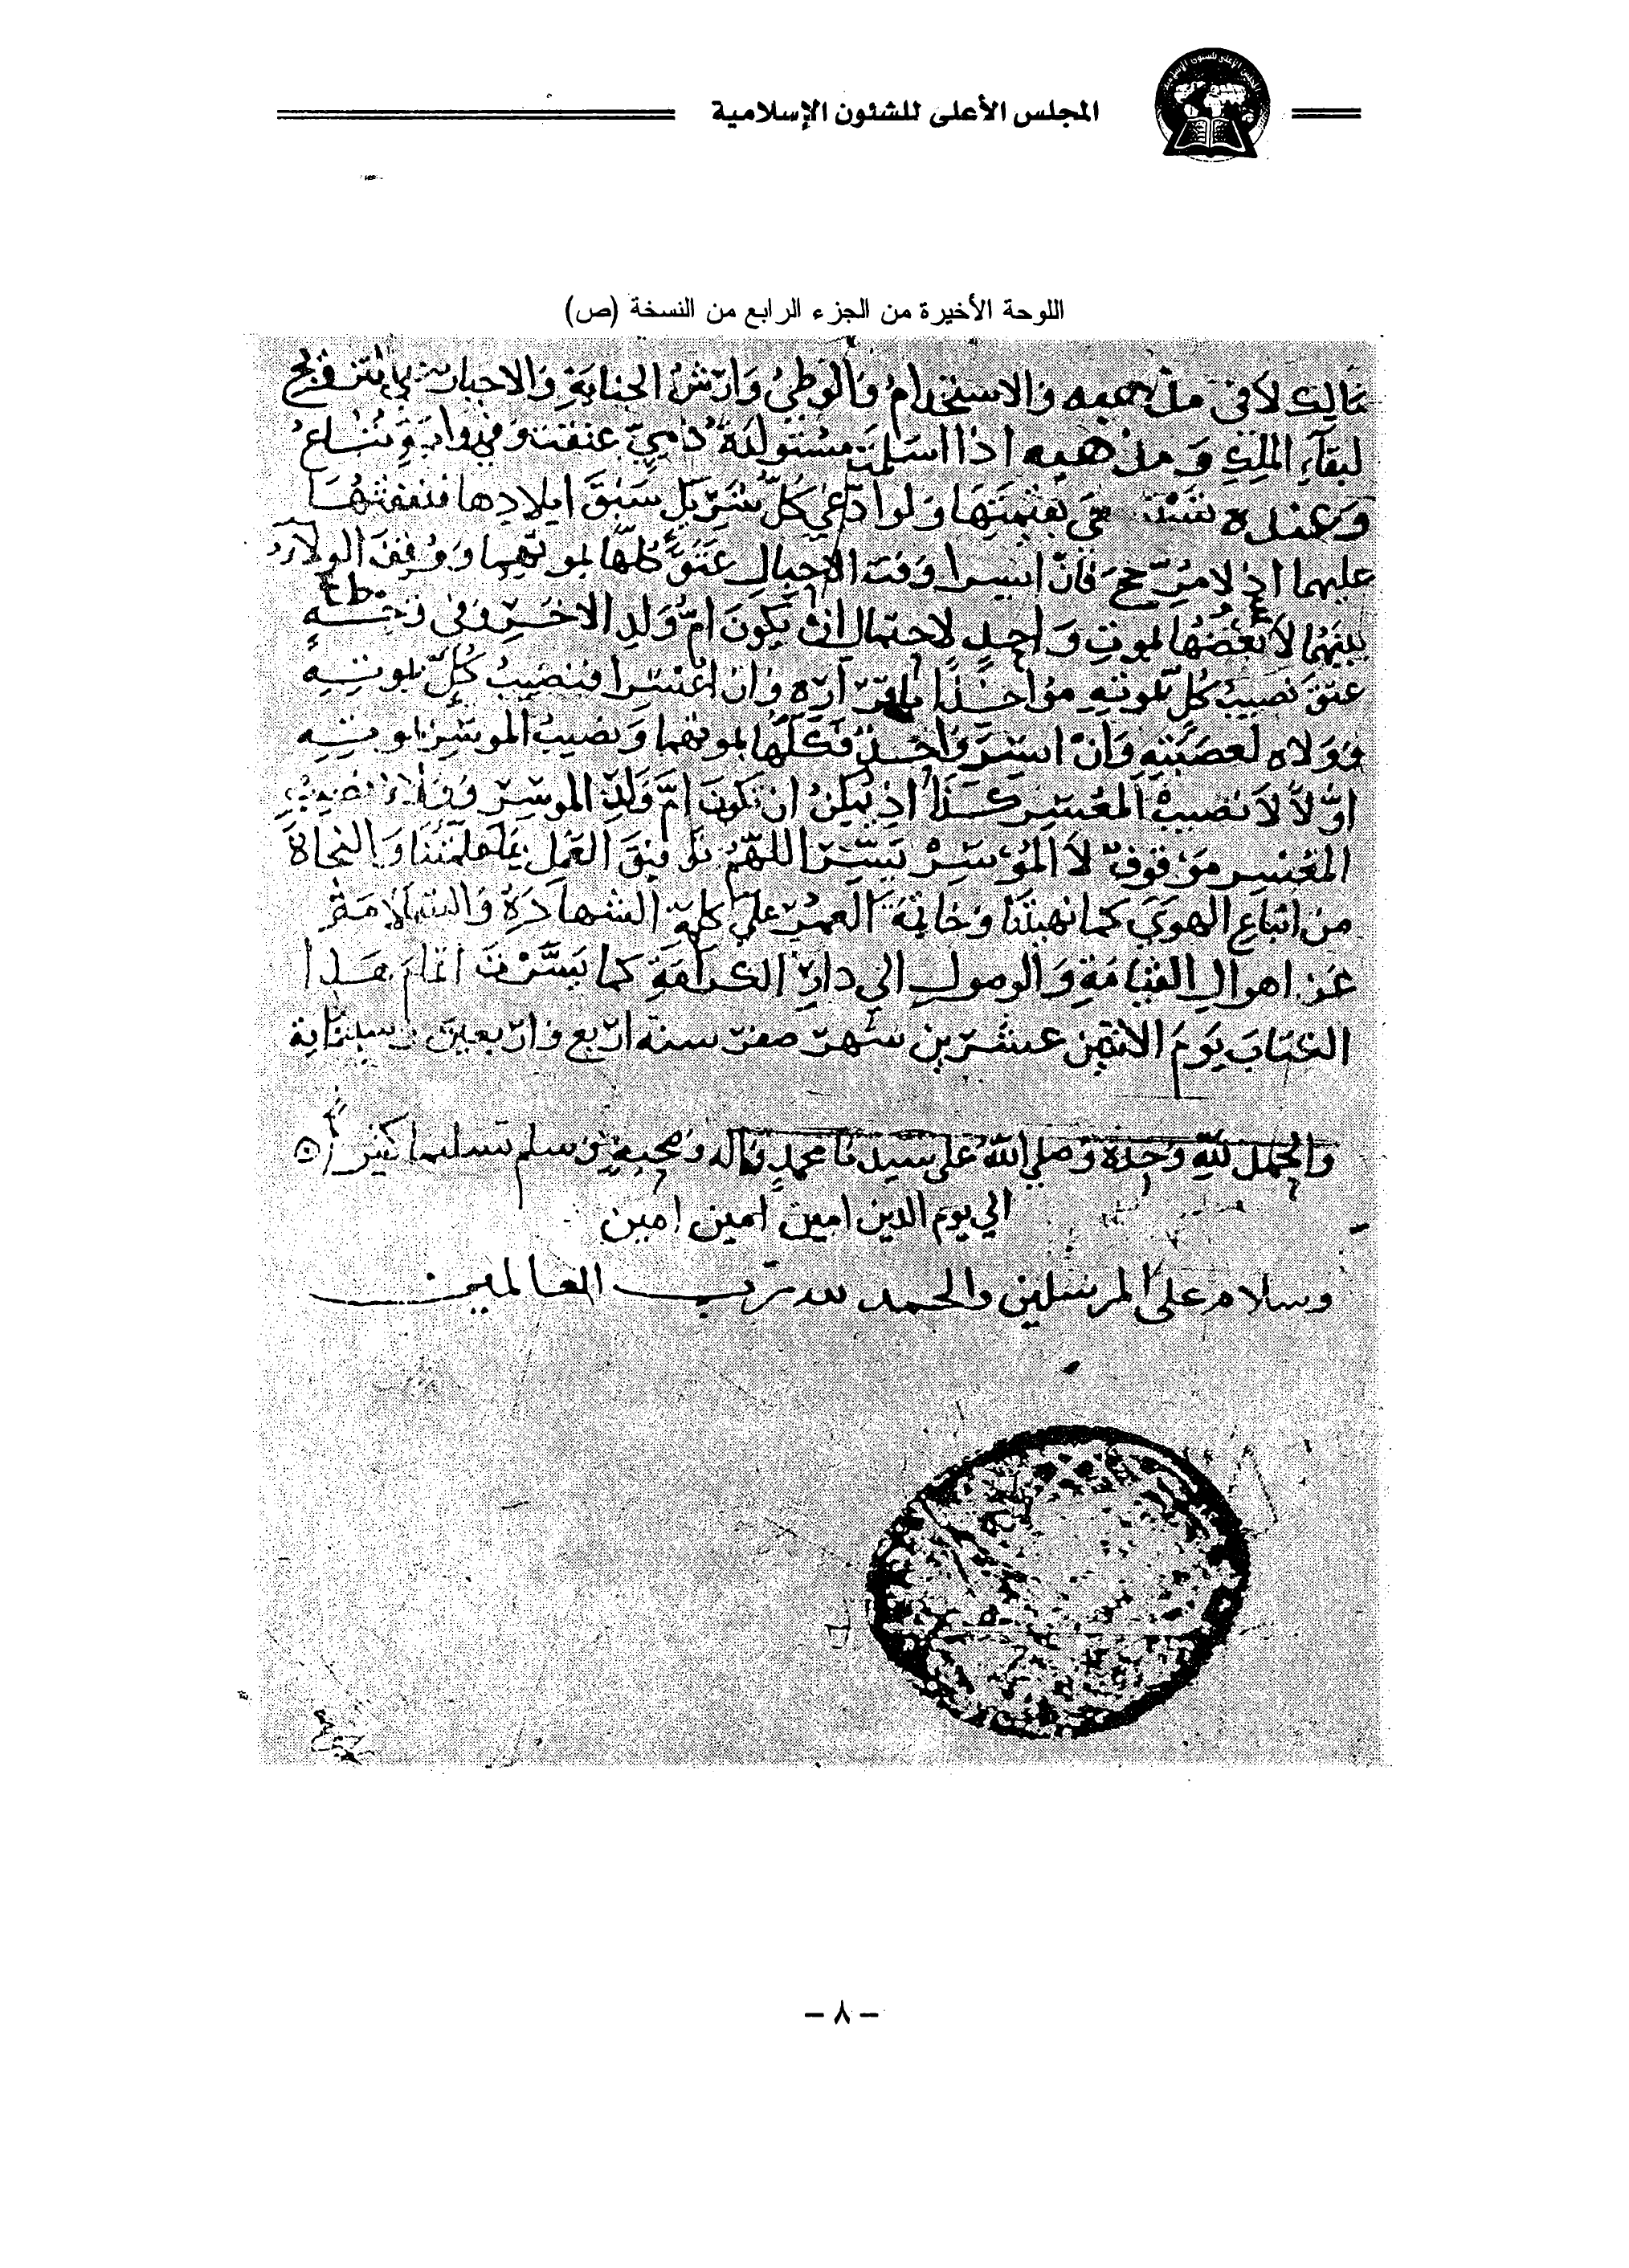 المجلس الأعلى للشئون الإسلامية
اللوحة الأخيرة من الجزء الرابع من النسخة (ص)
مالك لا في مذهبه والاستخدام والوطئ وارش الجناية والاجبار
لبقآء الملك ومذهبه اذا اسلمت مستولدة ذمي عتقت وفي رواية تباع
وعنده بقيمتها ولو ادعى كل شريك سبق ايلادها فنفقتها
عليهما اذ لا مرجح فان ايسرا وقت الاحبال عتق كلها بموتهما ووقف الولاء
بينهما لا بعضها بموت واحد لاحتمال ان يكون ام ولد الاخر وفي وجه
عتق نصيب كل بموته مؤاخذا باقراره وان اعسرا فنصيب كل بموته
وولاه لعصبته وان ايسر واحد فكلها بموتهما ونصيب الموسر بموته
اولا لا نصيب المعسر كذا اذ يمكن ان تكون ام ولد الموسر وولاء نصيب
المعسر موقوف لا الموسر يسر اللهم توفيق العمل بما علمتنا والنجاة
من اتباع الهوى كما نهيتنا وخاتمة العمر على كلمة الشهادة والسلامة
عن اهوال القيامة والوصول الى دار الكرامة كما يسرت اتمام هذا
الكتاب يوم الاثنين عشرين شهر صفر سنة اربع واربعين وسبعماية
والحمد لله وحده وصلى الله على سيدنا محمد واله وصحبه وسلم تسليما كثيرا
الي يوم الدين امين امين امين
وسلام على المرسلين والحمد لله رب العالمين
- ٨ -